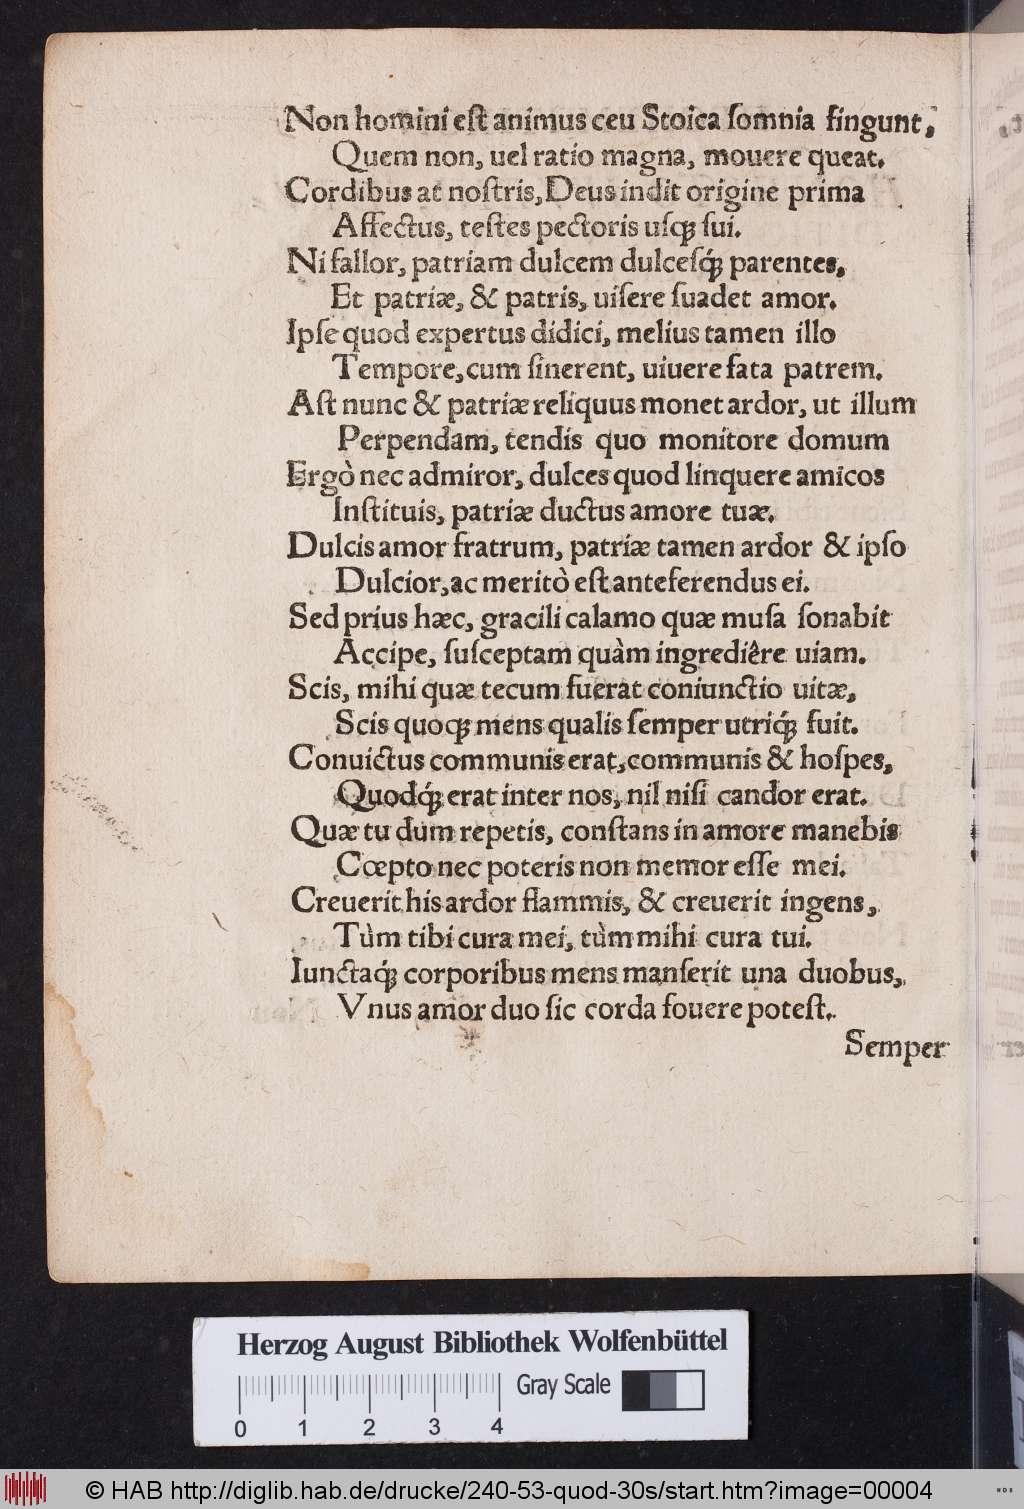 Non homini eſt animus ceu Stoica ſomnia fingunt,
Quem non, uel ratio magna, mouere queat.
Cordibus at noſtris, Deus indit origine prima
Affectus, teſtes pectoris uſqꝫ ſui.
Ni fallor, patriam dulcem dulceſqꝫ́ parentes,
Et patriæ, & patris, uiſere ſuadet amor.
Ipſe quod expertus didici, melius tamen illo
Tempore, cum ſinerent, uiuere fata patrem.
Aſt nunc & patriæ reliquus monet ardor, ut illum
Perpendam, tendis quo monitore domum
Ergò nec admiror, dulces quod linquere amicos
Inſtituis, patriæ ductus amore tuæ.
Dulcis amor fratrum, patriæ tamen ardor & ipſo
Dulcior, ac meritò eſt anteferendus ei.
Sed prius hæc, gracili calamo quæ muſa ſonabit
Accipe, ſuſceptam quàm ingrediêre uiam.
Scis, mihi quæ tecum fuerat coniunctio uitæ,
Scis quoqꝫ mens qualis ſemper utriqꝫ́ fuit.
Conuictus communis erat, communis & hoſpes,
Quodqꝫ́ erat inter nos, nil niſi candor erat.
Quæ tu dum repetis, conſtans in amore manebis
Cœpto nec poteris non memor eſſe mei.
Creuerit his ardor flammis, & creuerit ingens,
Tùm tibi cura mei, tùm mihi cura tui.
Iunctaqꝫ́ corporibus mens manſerit una duobus,
Vnus amor duo ſic corda fouere poteſt.
Semper
Herzog August Bibliothek Wolfenbüttel
Gray Scale
0 1 2 3 4
© HAB http://diglib.hab.de/drucke/240-53-quod-30s/start.htm?image=00004